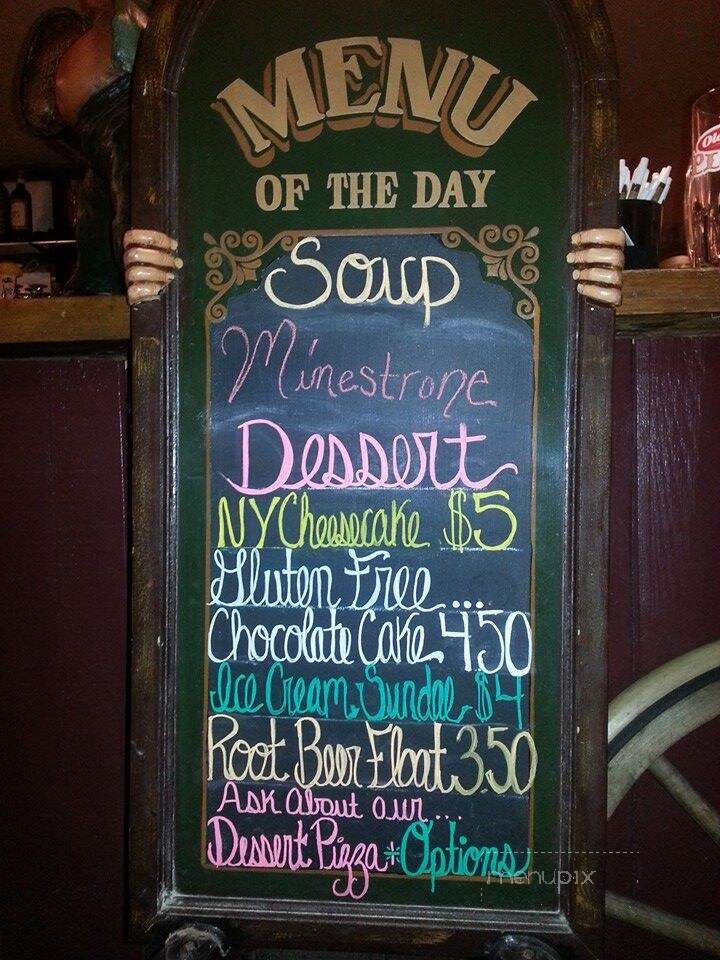 MENU
OF THE DAY
Soup
Minestrone
Dessert
NY Cheesecake $5
Gluten Free...
Chocolate Cake 4.50
Ice Cream Sundae $4
Root Beer Float 3.50
Ask About our...
Dessert Pizza + Options
menupix